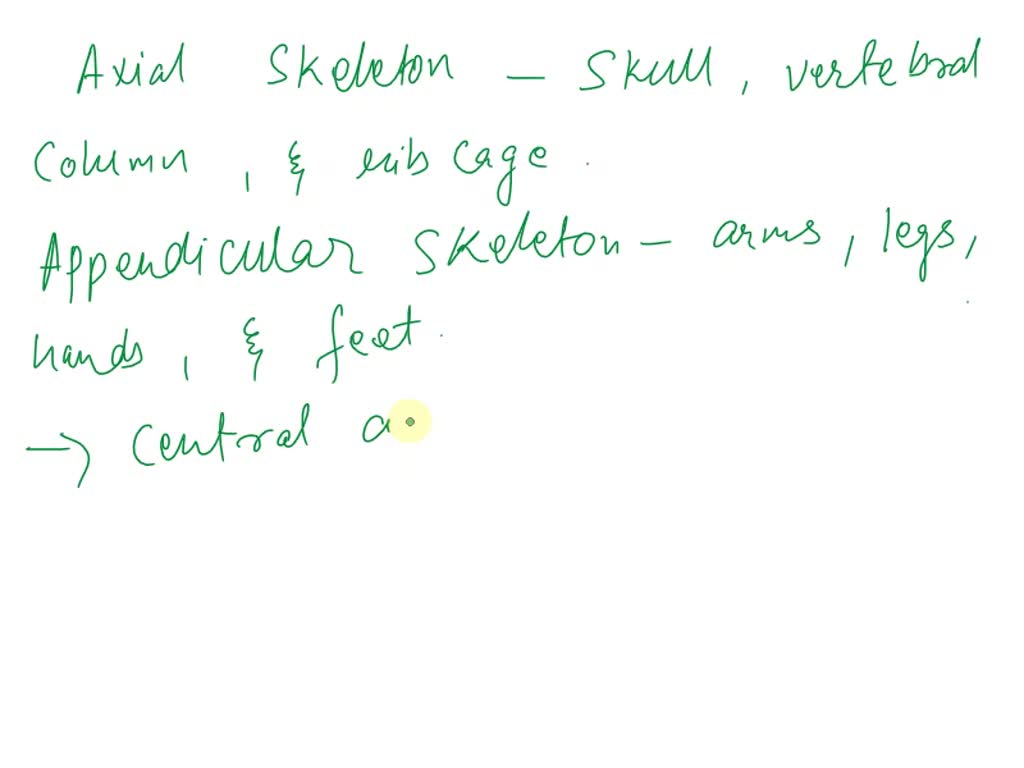 Axial Skeleton - Skull, vertebral
Column, & rib cage.
Appendicular Skeleton - arms, legs,
hands, & feet.
→ Central a